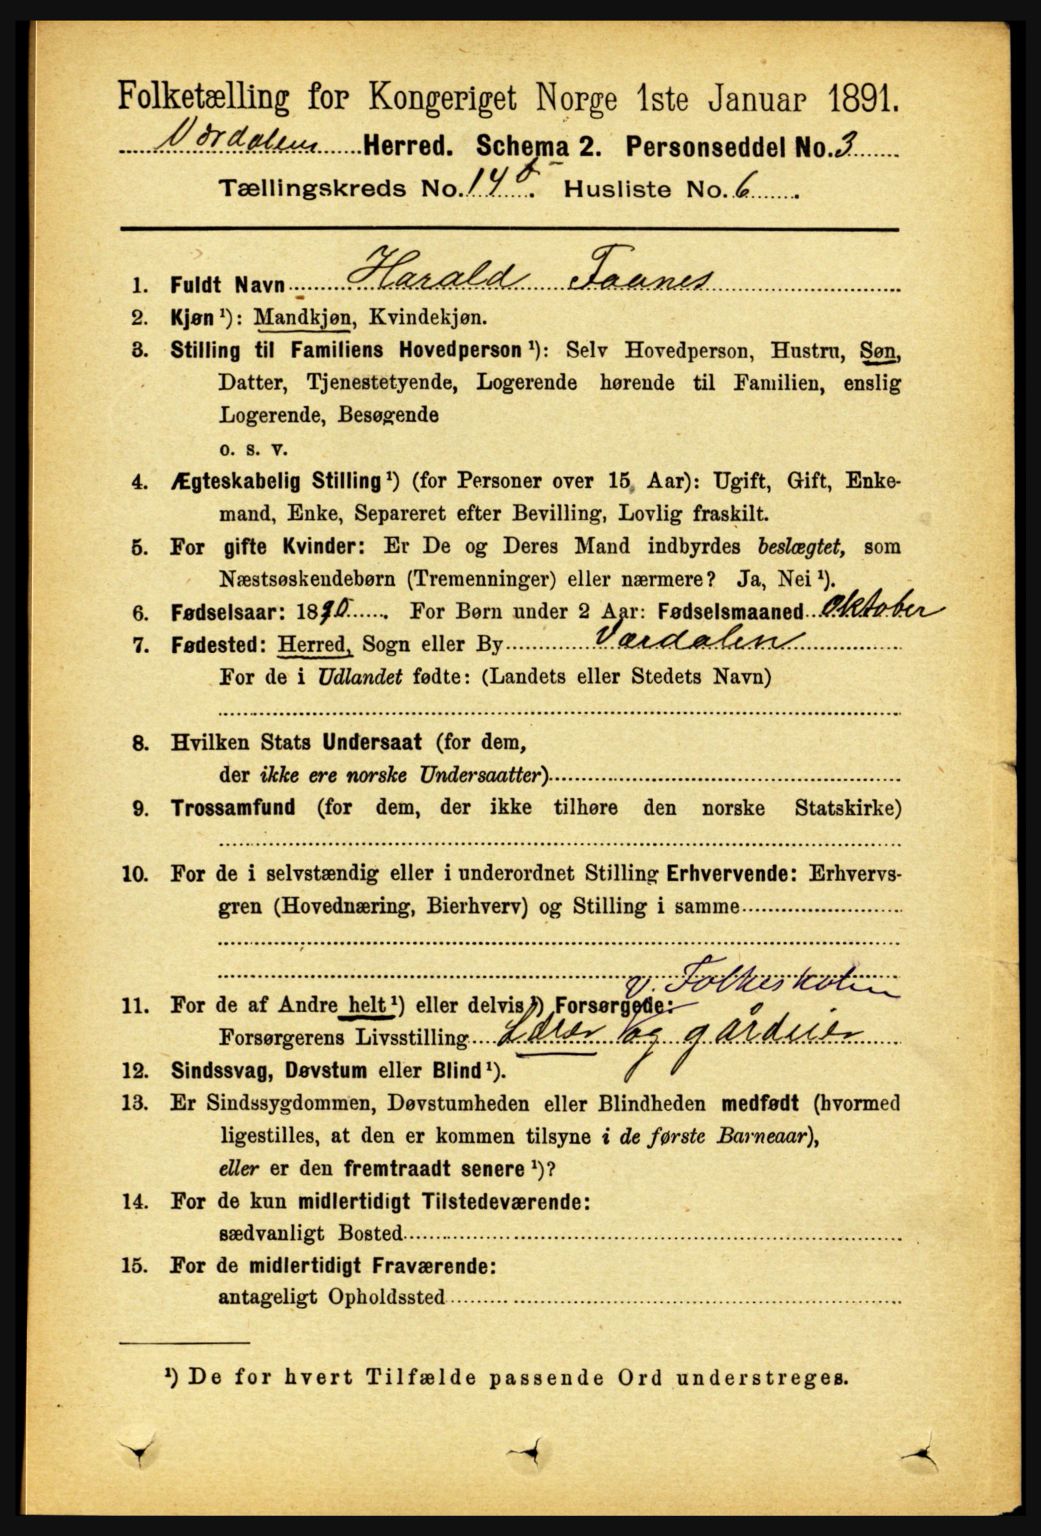 Folketælling for Kongeriget Norge 1ste Januar 1891.
Værdalens Herred. Schema 2. Personseddel No. 3
Tællingskreds No. 14 Husliste No. 6
1. Fuldt Navn Harald Faanes
2. Kjøn¹): Mandkjøn, Kvindekjøn.
3. Stilling til Familiens Hovedperson¹): Selv Hovedperson, Hustru, Søn,
Datter, Tjenestetyende, Logerende hørende til Familien, enslig
Logerende, Besøgende
o. s. v.
4. Ægteskabelig Stilling¹) (for Personer over 15 Aar): Ugift, Gift, Enke-
mand, Enke, Separeret efter Bevilling, Lovlig fraskilt.
5. For gifte Kvinder: Er De og Deres Mand indbyrdes beslægtet, som
Næstsøskendebørn (Tremenninger) eller nærmere? Ja, Nei¹).
6. Fødselsaar: 1890. For Børn under 2 Aar: Fødselsmaaned Oktober
7. Fødested: Herred, Sogn eller By Værdalen
For de i Udlandet fødte: (Landets eller Stedets Navn)
8. Hvilken Stats Undersaat (for dem,
der ikke ere norske Undersaatter)
9. Trossamfund (for dem, der ikke tilhøre den norske Statskirke)
10. For de i selvstændig eller i underordnet Stilling Erhvervende: Erhvervs-
gren (Hovednæring, Bierhverv) og Stilling i samme
v. Folkeskolen
11. For de af Andre helt¹) eller delvis¹) Forsørgede:
Forsørgerens Livsstilling Lærer og gårdeier
12. Sindssvag, Døvstum eller Blind¹).
13. Er Sindssygdommen, Døvstumheden eller Blindheden medfødt (hvormed
ligestilles, at den er kommen tilsyne i de første Barneaar),
eller er den fremtraadt senere¹)?
14. For de kun midlertidigt Tilstedeværende:
sædvanligt Bosted
15. For de midlertidigt Fraværende:
antageligt Opholdssted
¹) De for hvert Tilfælde passende Ord understreges.